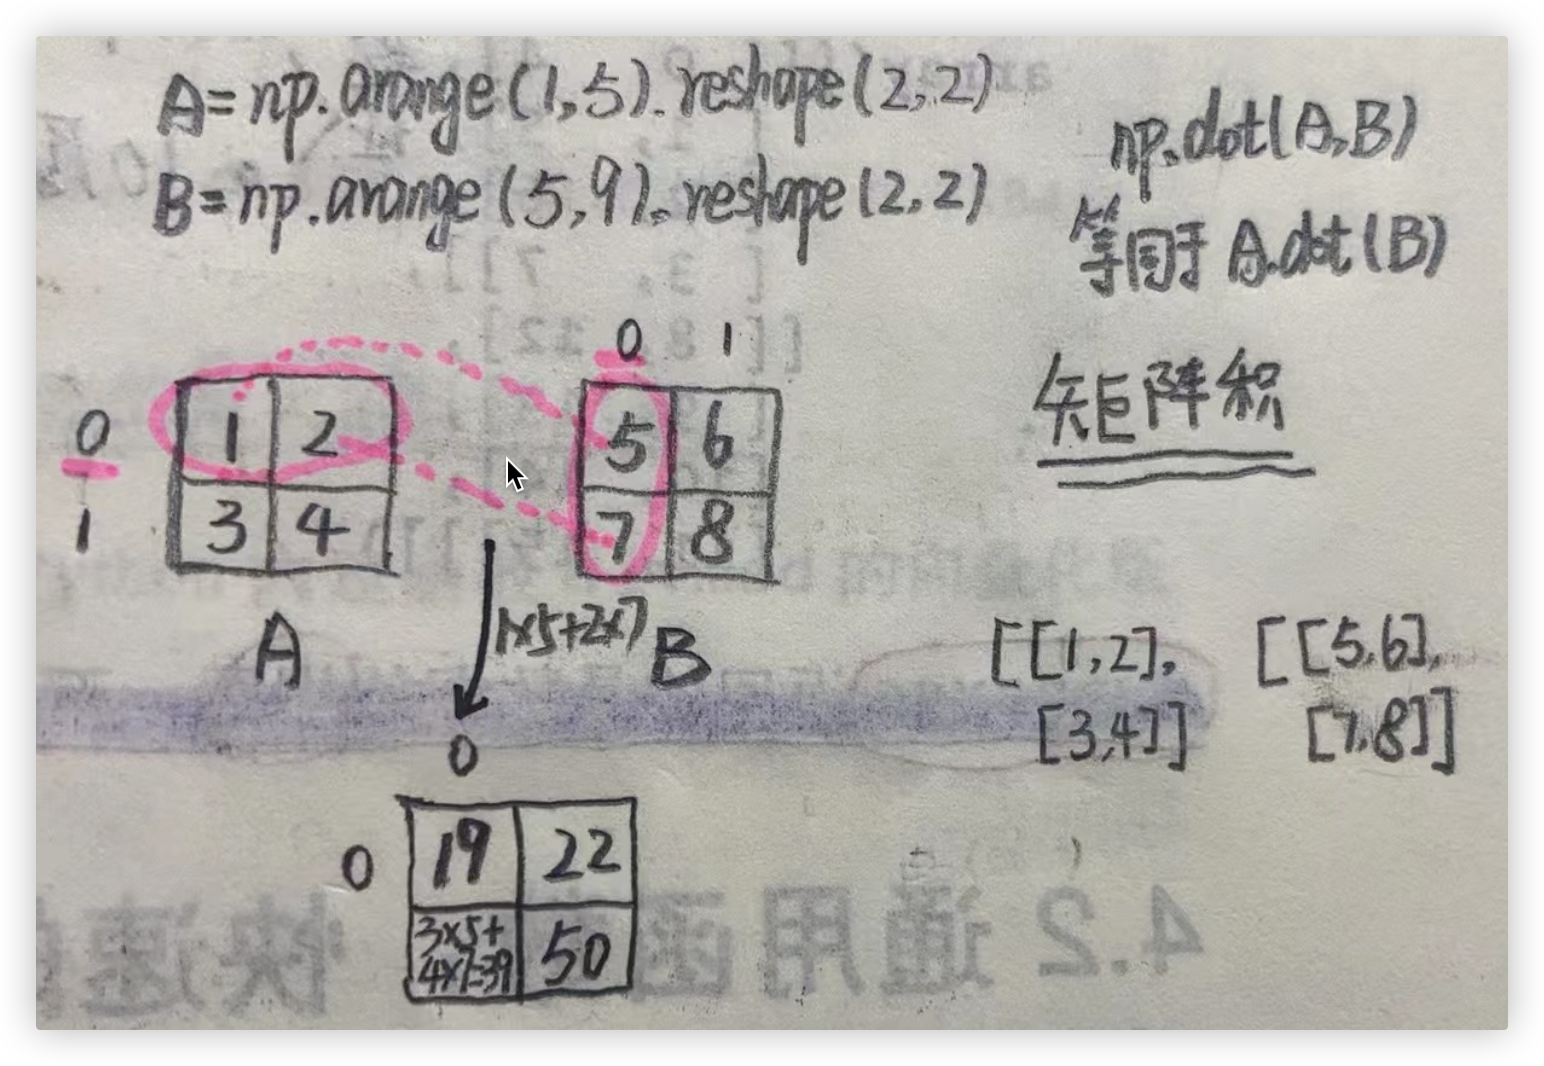 A=np.arange(1,5).reshape(2,2)
B=np.arange(5,9).reshape(2,2)
np.dot(A,B)
等同于 A.dot(B)
矩阵积
0 1
0 1 2 5 6
1 3 4 7 8
A B
1×5+2×7
[[1,2],
[3,4]]
[[5,6],
[7,8]]
0
0 19 22
3×5+
4×7=39 50
4.2 通用函
快速